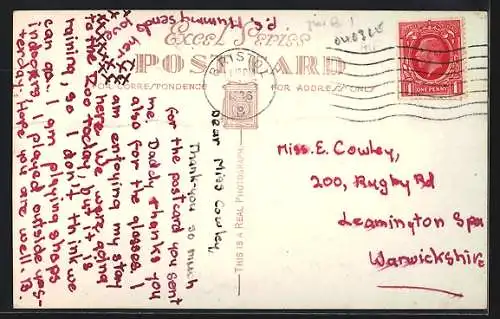 Excel Series
POST CARD
FOR CORRESPONDENCE
FOR ADDRESS ONLY
THIS IS A REAL PHOTOGRAPH
BRISTOL
ONE PENNY
Dear Miss Cowley,
Thank-you so much
for the postcard you sent
me. Daddy thanks you
also for the glasses. I
am enjoying my stay
here. We were going
to the Zoo today, but it is
raining, so I don't think we
can go. I am playing shops
indoors. I played outside yes-
terday. Hope you are well. B.
XXXXXX
P.S. Mummy sends
love
Miss.E. Cowley,
200, Rugby Rd
Leamington Spa
Warwickshire